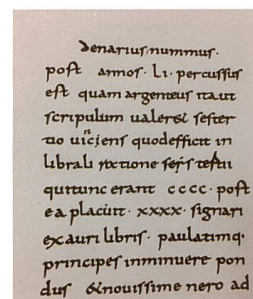 denarius nummus.
post annos. LI. percussus
est quam argenteus ita ut
scripulum valeret sester
tio viciens quod efficit in
librali ratione
qui tunc erant cccc. post
ea placuit. xxxx. signari
ex auri libris. paulatimq.
principes inminuere pon
dus &novissime nero ad